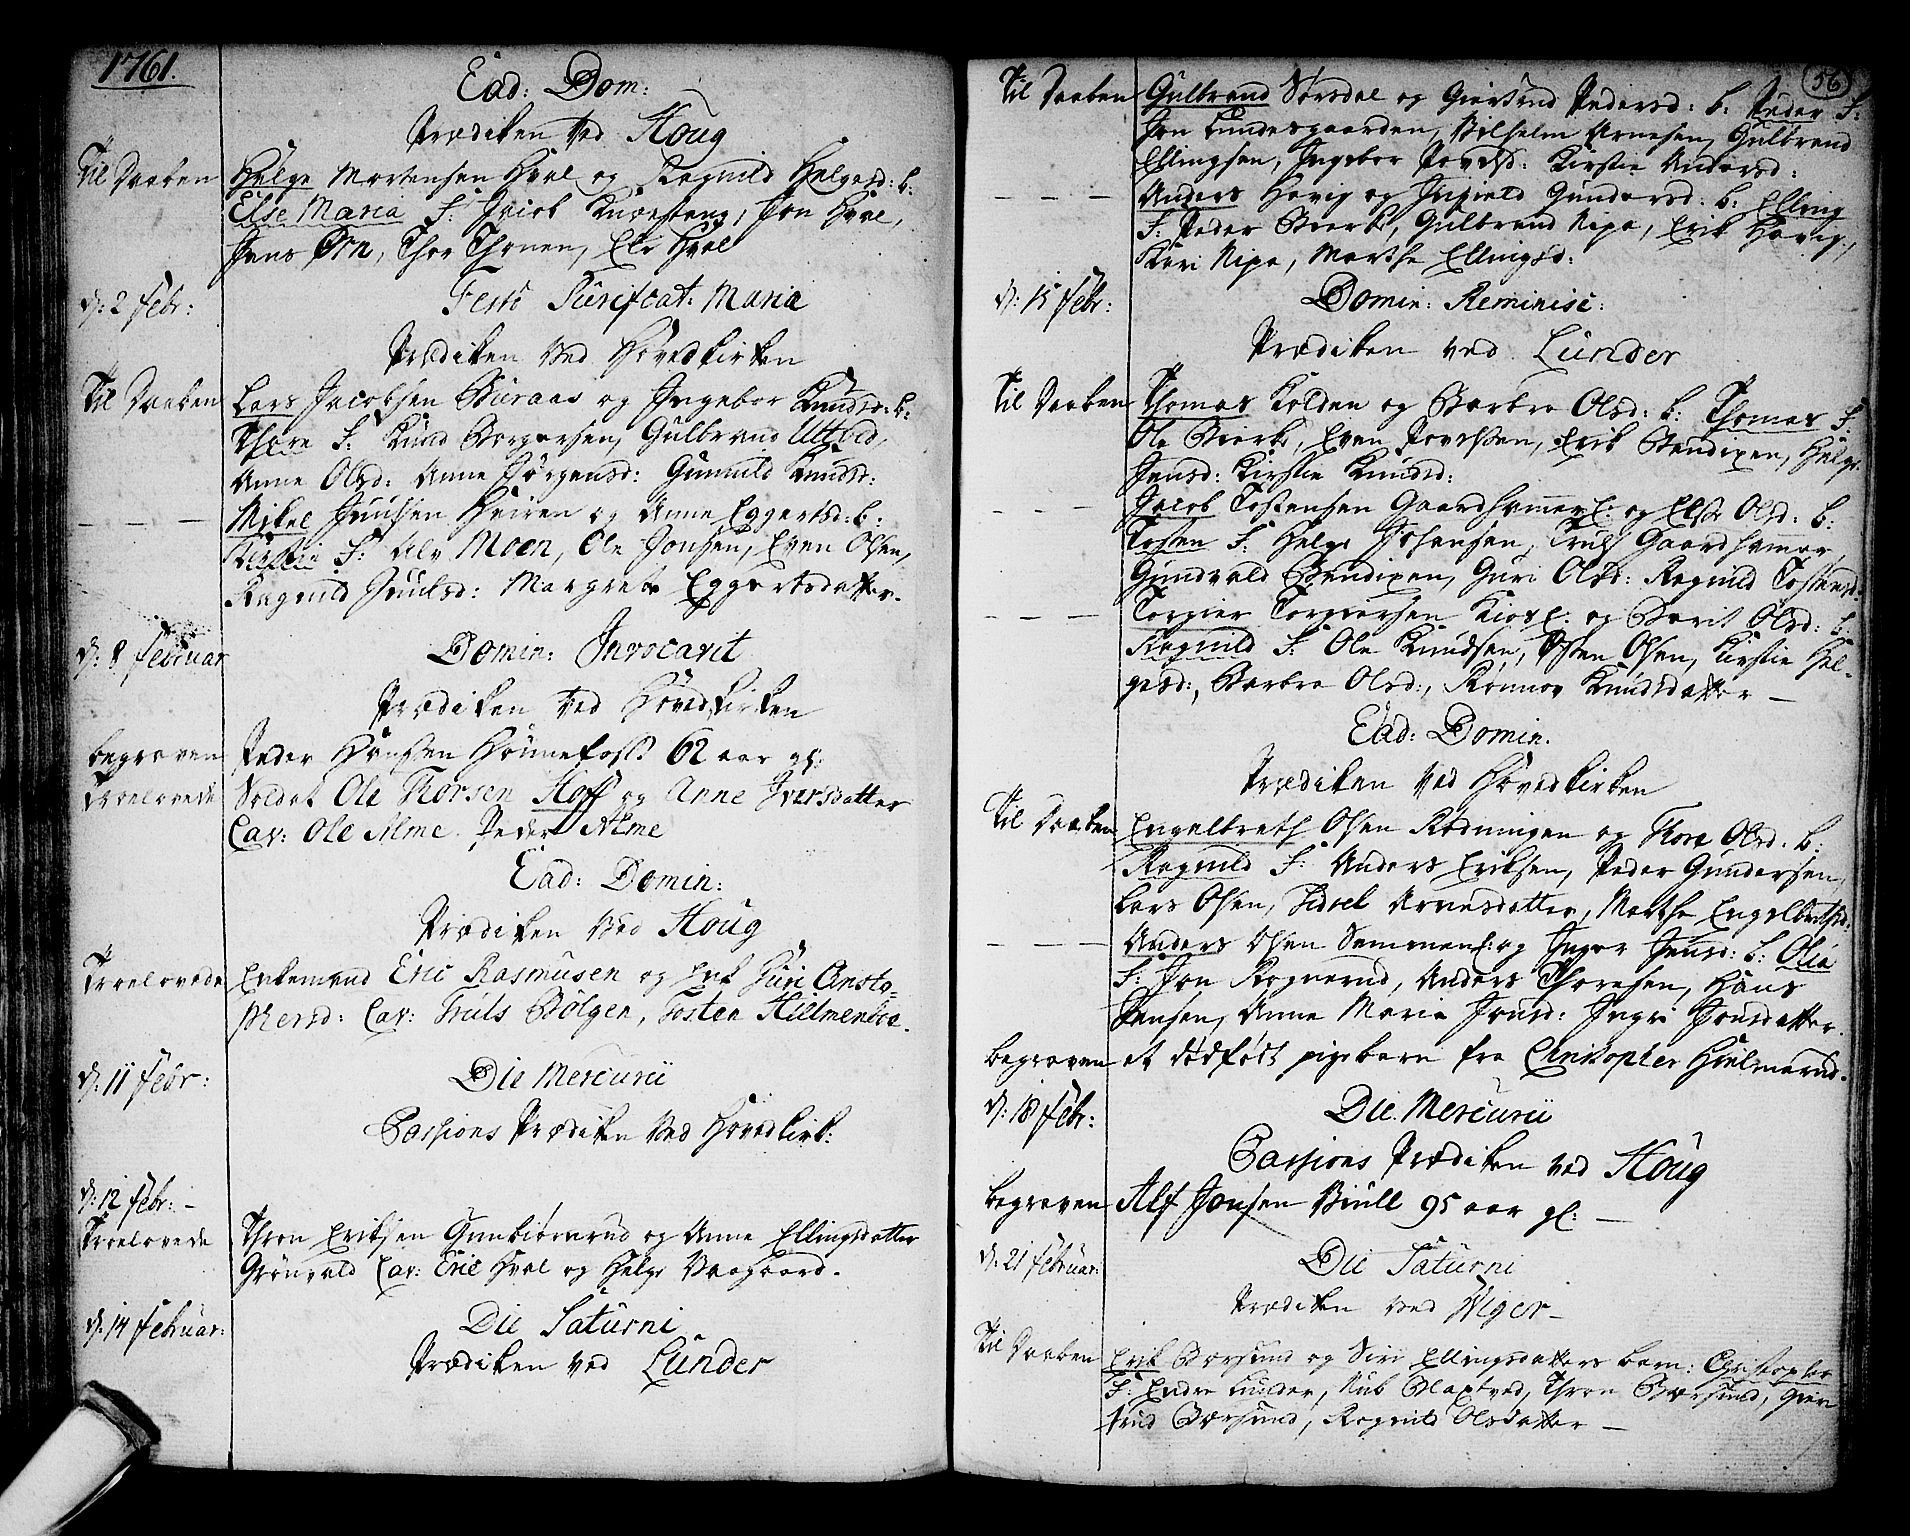 1761.
Ead: Dom:
Prædiken ved Houg
Til Daaben Helge Mortensen Hval og Ragnild Helgesd: b:
Else Maria F: Jacob Knæstang, Jon Hval,
Jens Ørn, Thor Thonen, Eli Hval
d: 2 Febr: Festo Purificat: Maria
Prædiken ved Hovedkirken
Til Daaben Lars Jacobsen Buraas og Ingebor Knudsd: b:
Thore F: Knud Borgersen, Gulbrand Ultved,
Anne Olsd: Anne Jørgensd: Gunnild Knudsd:
— — — Mikel Juulsen Heiren og Anne Eggertsd: b:
Kirstie F: Alv Moen, Ole Jonsen, Even Olsen,
Ragnild Juulsd: Margrete Eggertsdatter.
d: 8 Februar Domin: Invocavit
Prædiken ved Hovedkirken
begraven Peder Hansen Hønnefoss 62 aar gl:
Troelovede Soldat Ole Thorsen Hoff og Anne Iversdatter
Cav: Ole Alme. Peder Alme
Ead: Domin:
Prædiken ved Houg
Troelovede Enkemand Eric Rasmusen og Enke Guri Christo-
phersd: Cav: Truls Bølgen, Tosten Hillmenbra.
d: 11 Febr: Die Mercurii
Passions Prædiken ved Hovedkirk:
d: 12 Febr: –
Troelovede Thron Eriksen Gunbiørnrud og Anne Ellingsdatter
Grønvold Cav: Eric Hval og Helge Vaagaard.
d: 14 Februar: Die Saturni
Prædiken ved Lunder
56
Til Daaben Gulbrand Størsdal og Giertrud Pedersd: b: Peder F:
Jon Lundesgaarden, Vilhelm Arnesen, Gulbrand
Ellingsen, Ingebor Povelsd: Kirstie Andersd:
— — — Anders Hovig og Ingield Gundersd: b: Elling
F: Peder Bierke, Gulbrand Ripa, Erik Hovig,
Kari Ripa, Marthe Ellingsd:
d: 15 Febr: Domin: Reminisc:
Prædiken ved Lunder
Til Daaben Thomas Kolden og Barbro Olsd: b: Thomas F:
Ole Bierke, Even Povelsen, Erik Bendixen, Helge
Jensd: Kirstie Knudsd:
— — — Jacob Tostensen Gaardhammer E: og Else Olsd: b:
Tosten F: Helge Johansen, Truls Gaardhamar,
Gundvald Bendixen, Guri Olsd: Ragnild Tostensd:
— — — Torgier Torgiersen Kios E: og Berit Olsd: b:
Ragnild F: Ole Knudsen, Østen Olsen, Kirstie Hel-
gesd:, Barbro Olsd:, Rønnov Knudsdatter —
Ead: Domin.
Prædiken ved Hovedkirken
Til Daaben Engelbreth Olsen Rødningen og Thore Olsd. b:
Ragnild F: Anders Eriksen, Peder Gundersen,
Lars Olsen, Sidsel Arnesdatter, Marthe Engelbrethsd:
— — — Anders Olsen Semmen E: og Inger Jensd: b: Olia
F: Jon Rognerud, Anders Thoresen, Hans
Jensen, Anne Maria Jonsd: Ingri Jonsdatter.
begraven et dødfødt pigebarn fra Christopher Hvalmerud.
d: 18 Febr: Die Mercurii
Passions Prædiken ved Houg
begraven Alf Jonsen Biull 95 aar gl: —
d: 21 Februar: Die Saturni
Prædiken ved Viger –
Til Daaben Erik Børsund og Siri Ellingsdatters barn: Christopher
F: Endre Lunder, Nub Blaxtved, Thron Børsund, Gier
trud Børsund, Ragnild Olsdatter —